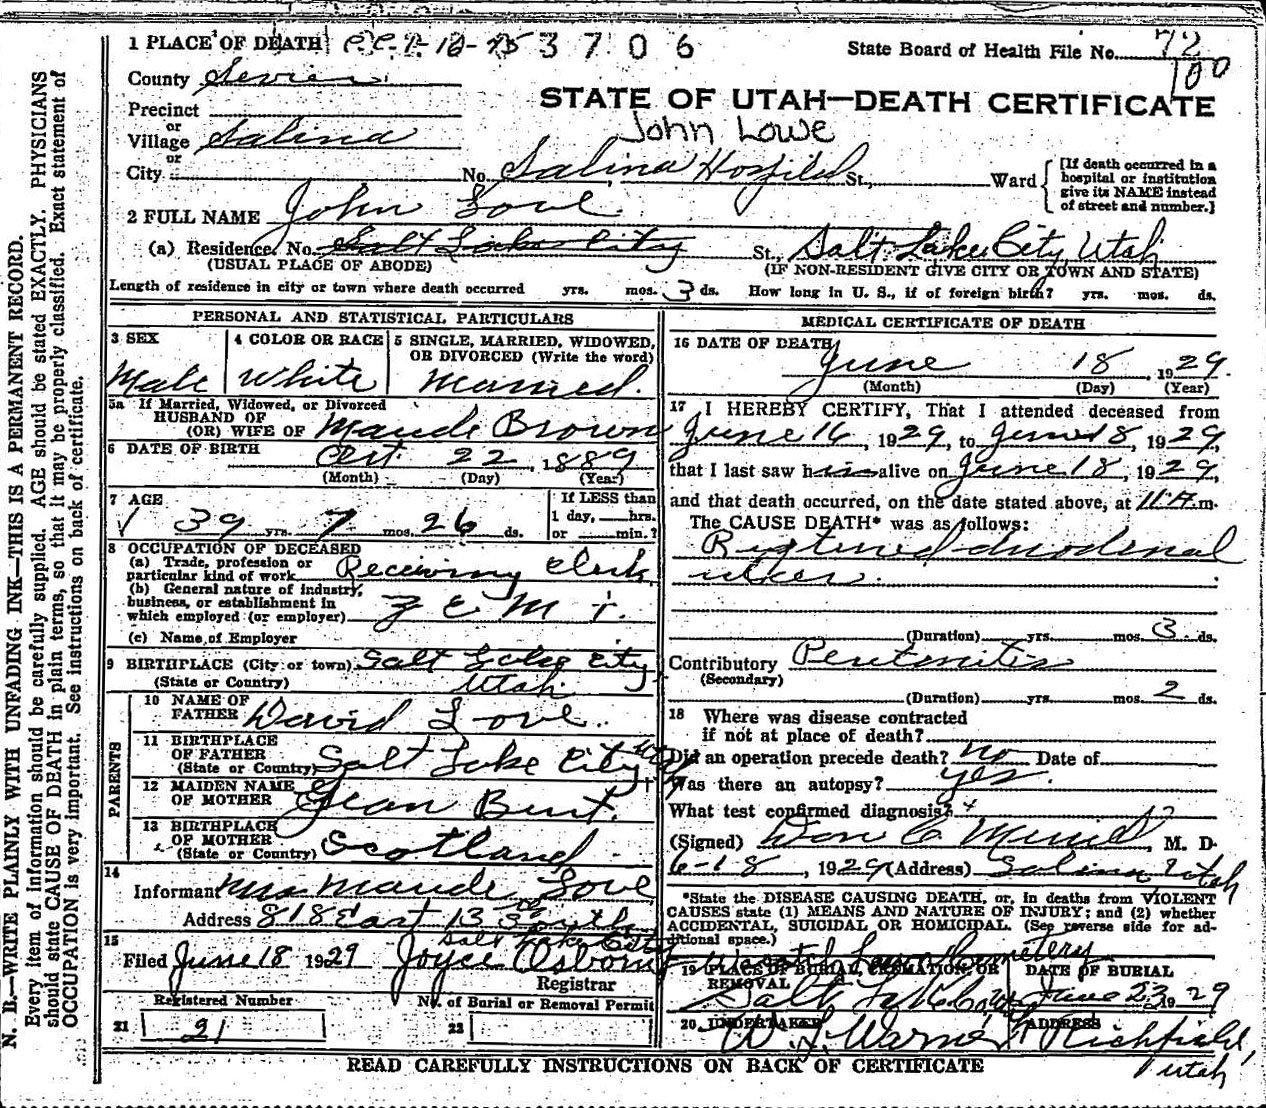 1 PLACE OF DEATH 3706 State Board of Health File No. 72
100
County Sevier
STATE OF UTAH—DEATH CERTIFICATE
Precinct
or
John Lowe
Village Salina
or
City No. Salina Hospital St., Ward
[If death occurred in a
hospital or institution
give its NAME instead
of street and number.]
2 FULL NAME John Love
(a) Residence. No. Salt Lake City St., Salt Lake City, Utah
(USUAL PLACE OF ABODE) (IF NON-RESIDENT GIVE CITY OR TOWN AND STATE)
Length of residence in city or town where death occurred yrs. mos. 3 ds. How long in U. S., if of foreign birth? yrs. mos. ds.
PERSONAL AND STATISTICAL PARTICULARS
3 SEX 4 COLOR OR RACE 5 SINGLE, MARRIED, WIDOWED,
OR DIVORCED (Write the word)
Male White Married.
5a If Married, Widowed, or Divorced
HUSBAND OF
(OR) WIFE OF Maude Brown
6 DATE OF BIRTH Oct. 22, 1889
(Month) (Day) (Year)
7 AGE If LESS than
1 day, hrs.
39 yrs. 7 mos. 26 ds. or min.?
8 OCCUPATION OF DECEASED
(a) Trade, profession or
particular kind of work Receiving Clerk
(b) General nature of industry,
business, or establishment in
which employed (or employer) Z C M I.
(c) Name of Employer
9 BIRTHPLACE (City or town) Salt Lake City
(State or Country) Utah
PARENTS
10 NAME OF
FATHER David Love.
11 BIRTHPLACE
OF FATHER
(State or Country) Salt Lake City
12 MAIDEN NAME
OF MOTHER Jean Burt.
13 BIRTHPLACE
OF MOTHER
(State or Country) Scotland
14
Informant Mrs Maude Love
Address 818 East 13th South
Salt Lake City
15
Filed June 18 1929 Joyce Osborn
Registrar
Registered Number No. of Burial or Removal Permit
21 21 22
MEDICAL CERTIFICATE OF DEATH
16 DATE OF DEATH
June 18, 1929.
(Month) (Day) (Year)
17 I HEREBY CERTIFY, That I attended deceased from
June 16, 1929, to June 18, 1929,
that I last saw him alive on June 18, 1929,
and that death occurred, on the date stated above, at 11 A.m.
The CAUSE DEATH* was as follows:
Ruptured duodenal
ulcer.
(Duration) yrs. mos. 3 ds.
Contributory Peritonitis
(Secondary)
(Duration) yrs. mos. 2 ds.
18 Where was disease contracted
if not at place of death?
Did an operation precede death? no Date of
Was there an autopsy? yes.
What test confirmed diagnosis?
(Signed) Don C Merrill, M. D.
6-18, 1929 (Address) Salina Utah
*State the DISEASE CAUSING DEATH, or, in deaths from VIOLENT
CAUSES state (1) MEANS AND NATURE OF INJURY; and (2) whether
ACCIDENTAL, SUICIDAL OR HOMICIDAL. (See reverse side for ad-
ditional space.)
Wasatch Lawn Cemetery
19 PLACE OF BURIAL, CREMATION, OR
REMOVAL
DATE OF BURIAL
Salt Lake June 23 1929
20 UNDERTAKER ADDRESS
Richfield,
Utah
READ CAREFULLY INSTRUCTIONS ON BACK OF CERTIFICATE
N. B.—WRITE PLAINLY WITH UNFADING INK—THIS IS A PERMANENT RECORD.
Every item of information should be carefully supplied. AGE should be stated EXACTLY. PHYSICIANS
should state CAUSE OF DEATH in plain terms, so that it may be properly classified. Exact statement of
OCCUPATION is very important. See instructions on back of certificate.